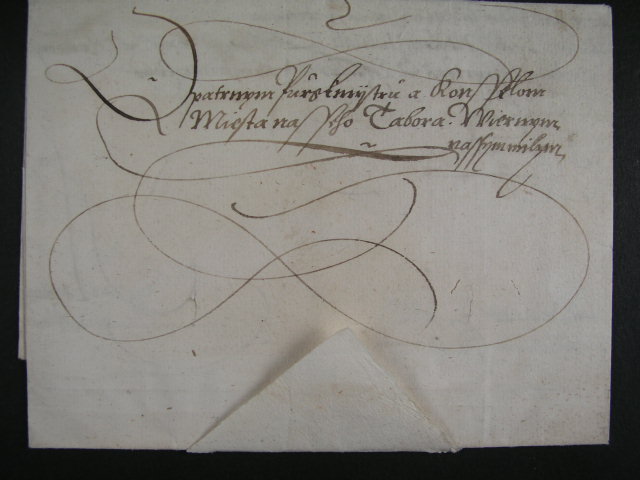 Opatrnym Purkmistru a Konsselom
Miesta nasseho Tabora. Wiernym
nassym milym